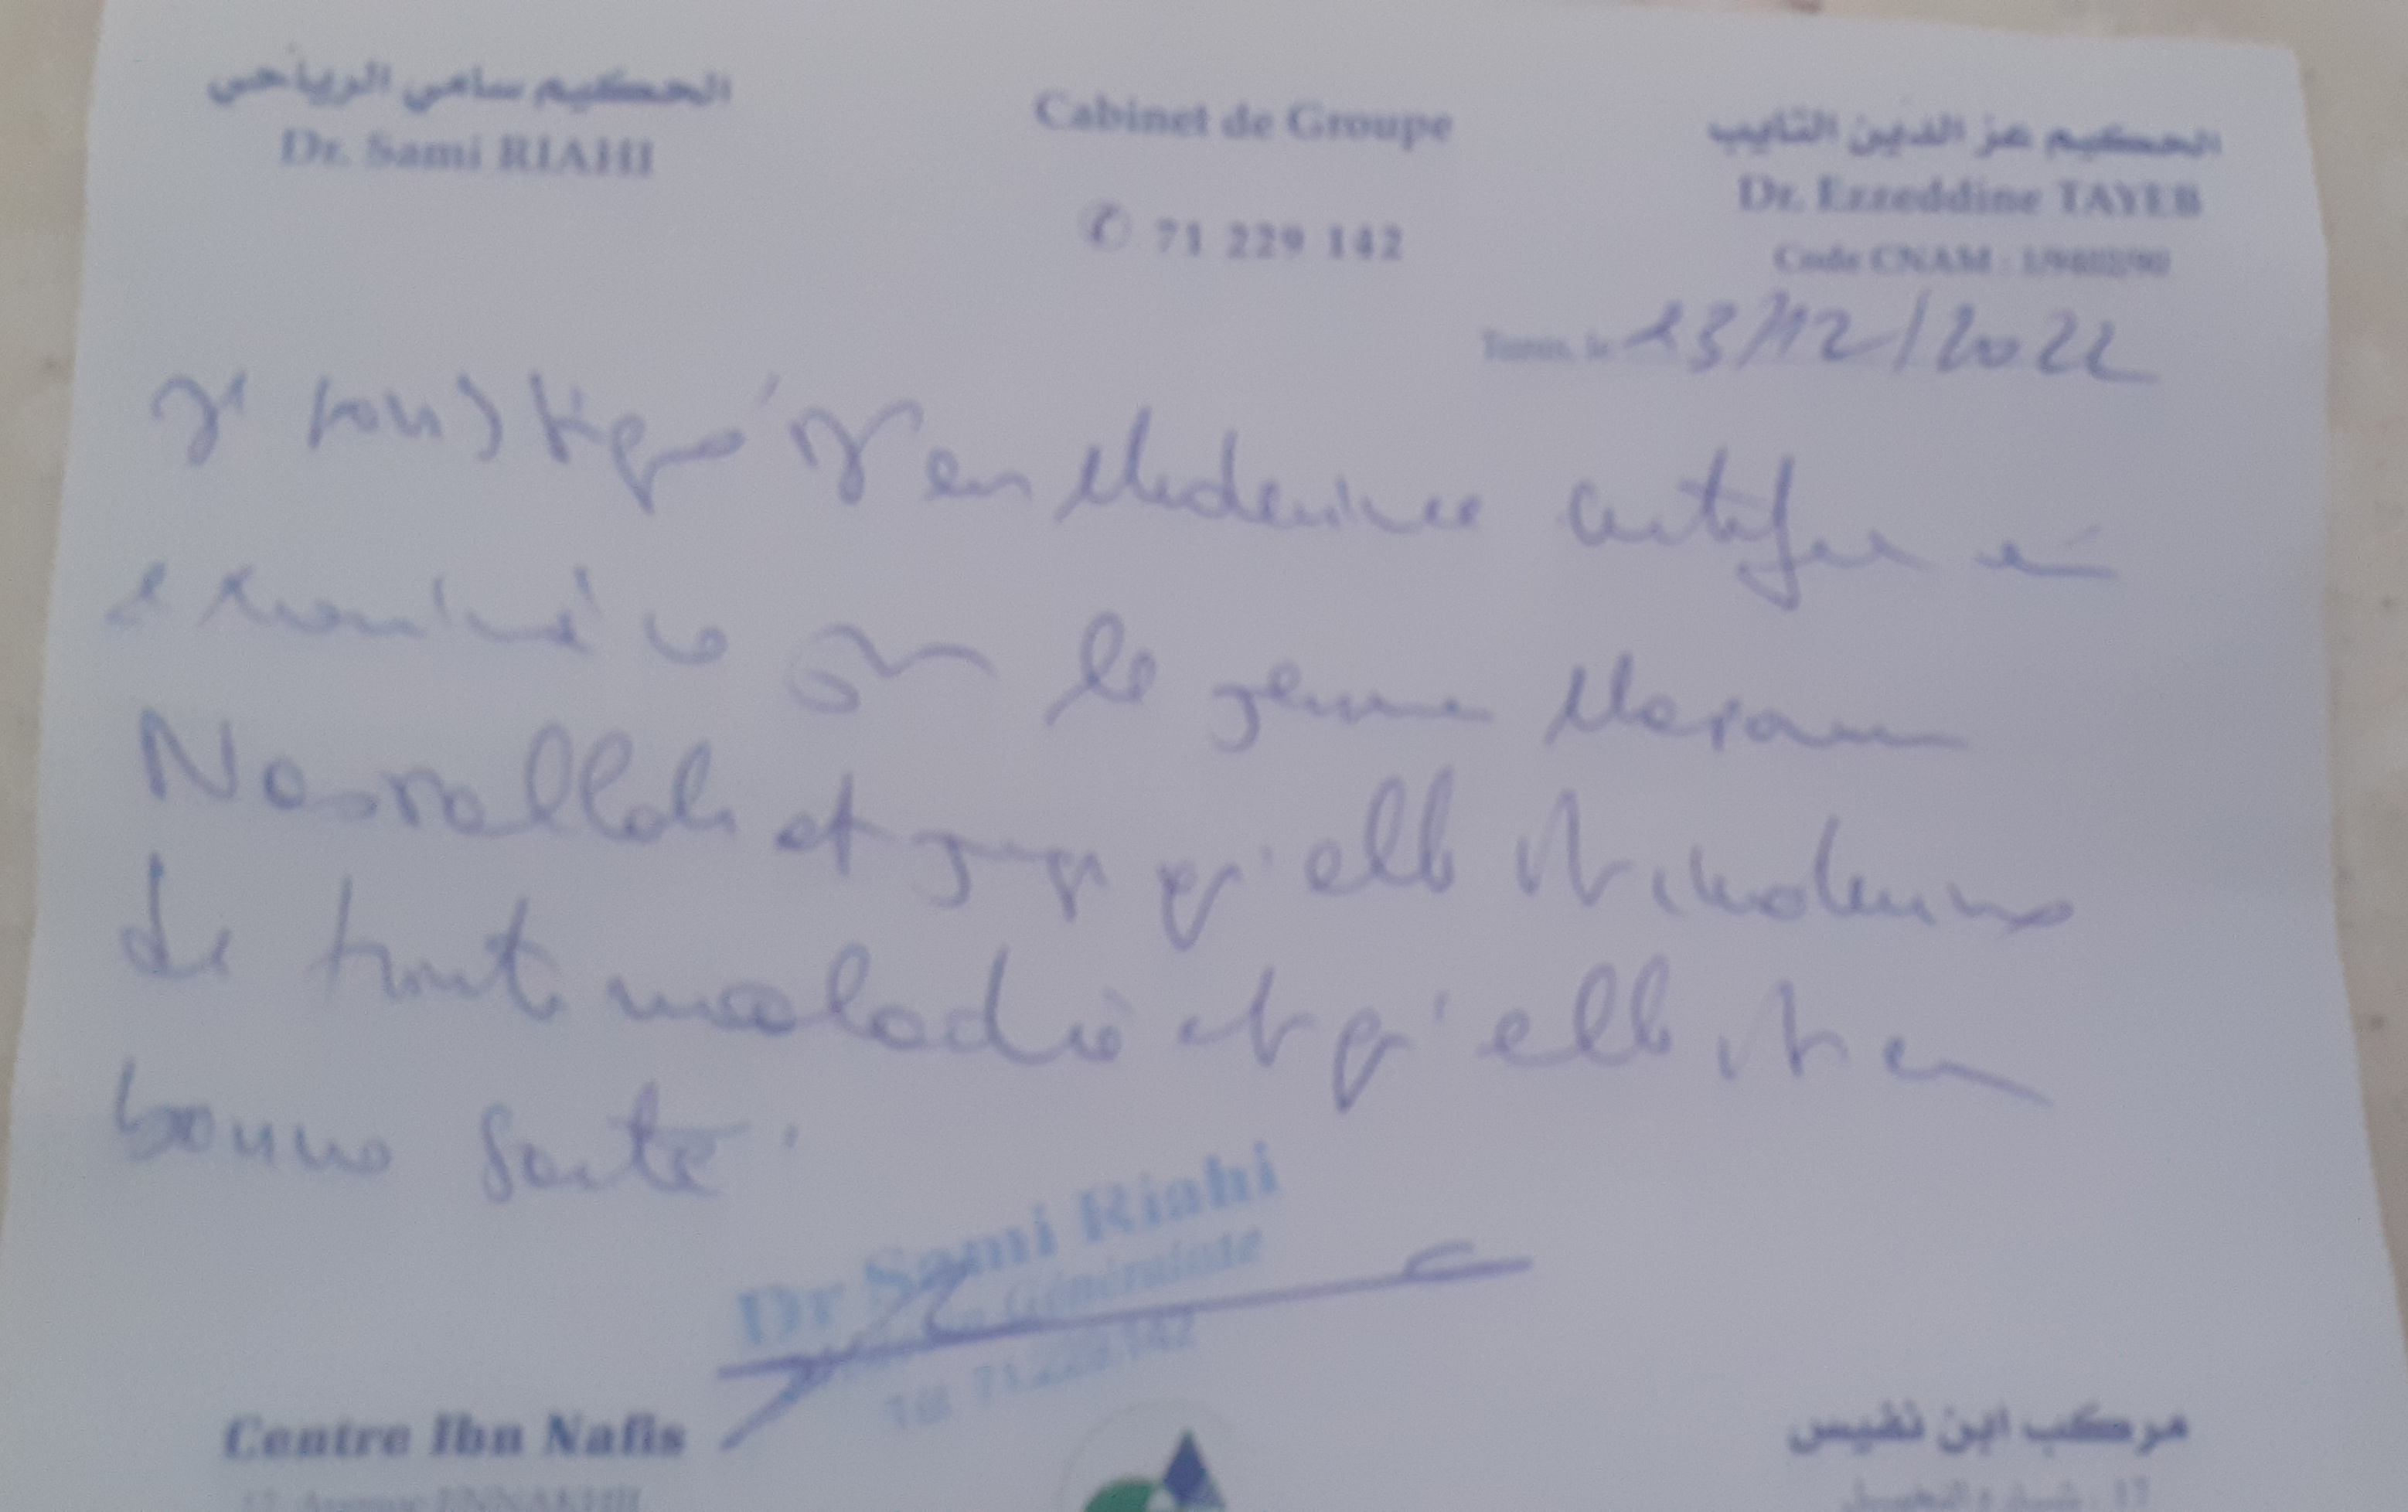 الحكيم سامي الرياحي
Dr. Sami RIAHI
Cabinet de Groupe
✆ 71 229 142
الحكيم عز الدين التايب
Dr. Ezzeddine TAYEB
Code CNAM :
Tunis, le 23/12/2022
Je soussigné Dr en Medecine certifie avoir
examiné ce jour la jeune Meram
Nasrallah et juge qu'elle est indemne
de toute maladie et qu'elle est en
bonne santé.
Dr Sami Riahi
Médecin Généraliste
Tél 71.229.142
Centre Ibn Nafis
مركب ابن نفيس
17, Avenue ENNAKHIL
17، شارع النخيل